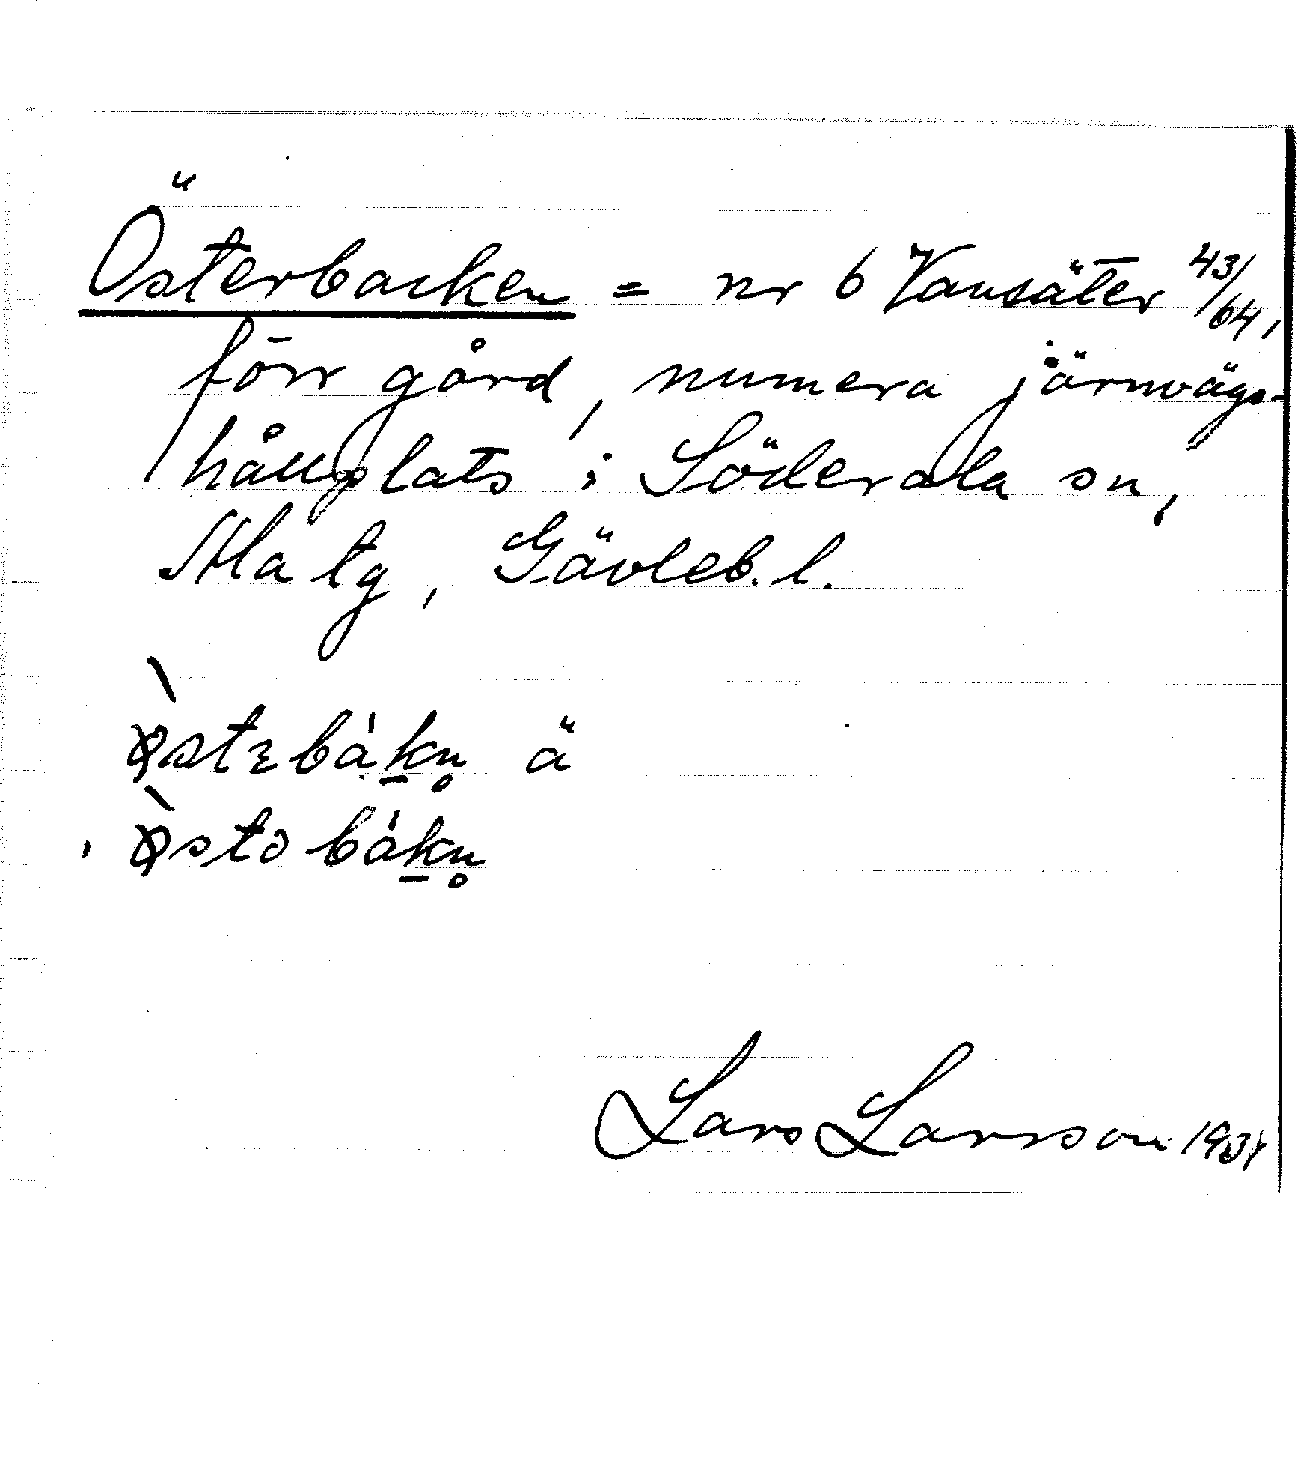 Österbacken = nr 6 Vansäter 43/64,
förr gård, numera järnvägs-
hållplats i Söderala sn,
Ala tg, Gävleb. l.
ä
Lars Larsson 1931